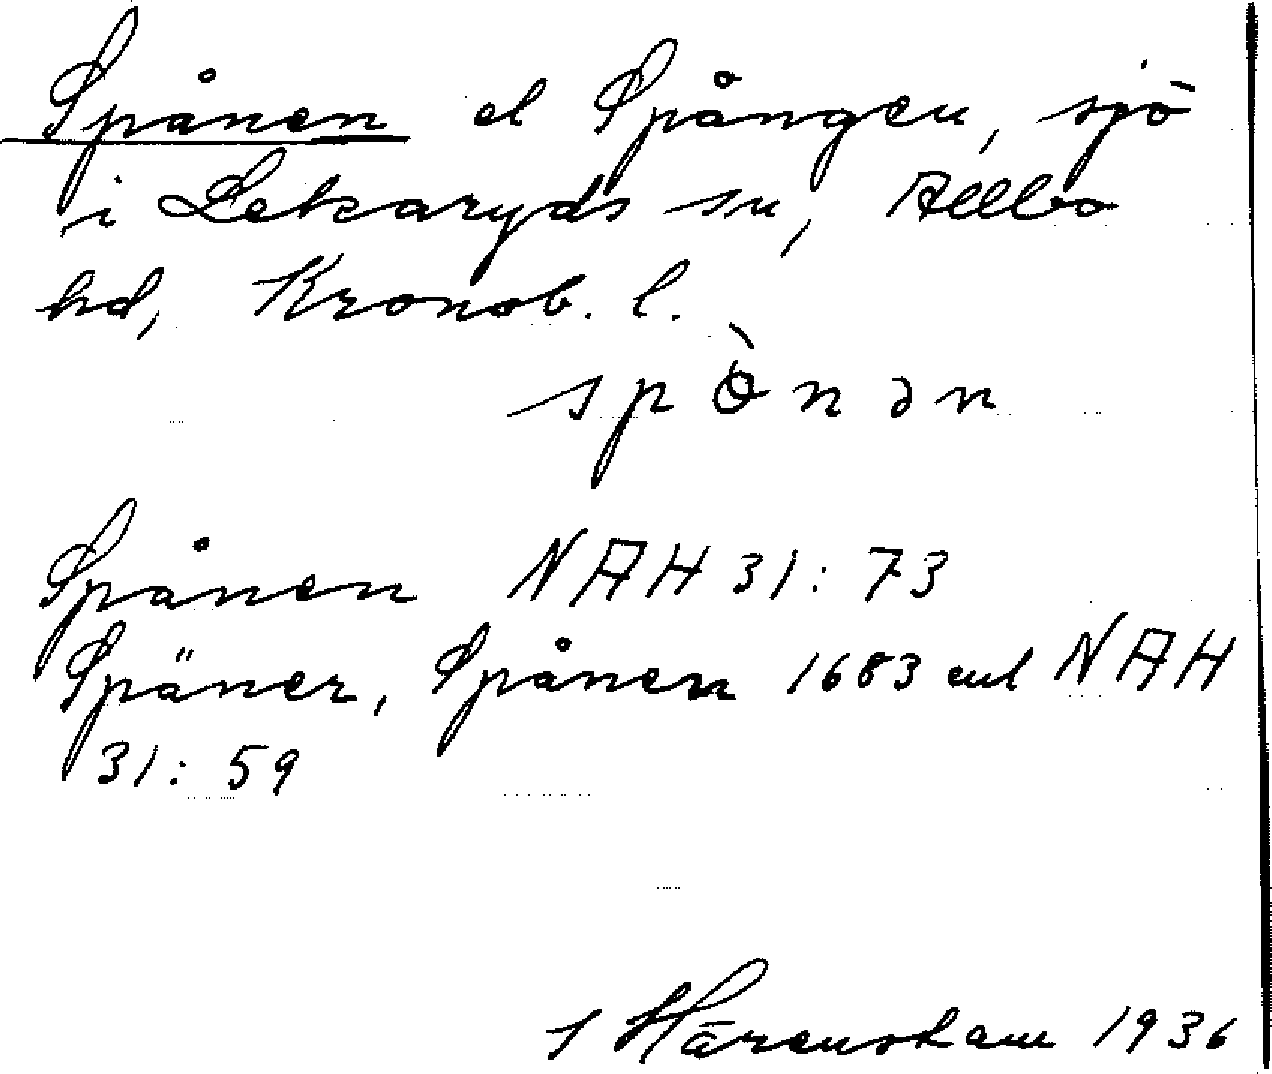 Spånen el Spången, sjö
i Lekaryds sn, Allbo
hd, Kronob. l.
spò̀nən
Spånen NAH 31:73
Späner, Spånen 1683 enl NAH
31:59
S Härensdam 1936